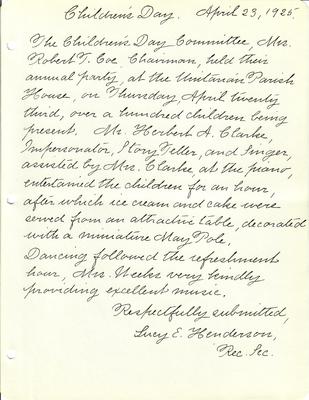 Children's Day. April 23, 1925
The Children's Day Committee, Mrs.
Robert T. Coe. Chairman, held their
annual party, at the Unitarian Parish
House, on Thursday, April twenty
third, over a hundred children being
present. Mr. Herbert A. Clarke,
Impersonator, Story Teller, and Singer,
assisted by Mrs. Clarke, at the piano,
entertained the children for an hour,
after which ice cream and cake were
served from an attractive table, decorated
with a miniature May Pole.
Dancing followed the refreshment
hour, Mrs. Weeks very kindly
providing excellent music.
Respectfully submitted,
Lucy E. Henderson,
Rec. Sec.